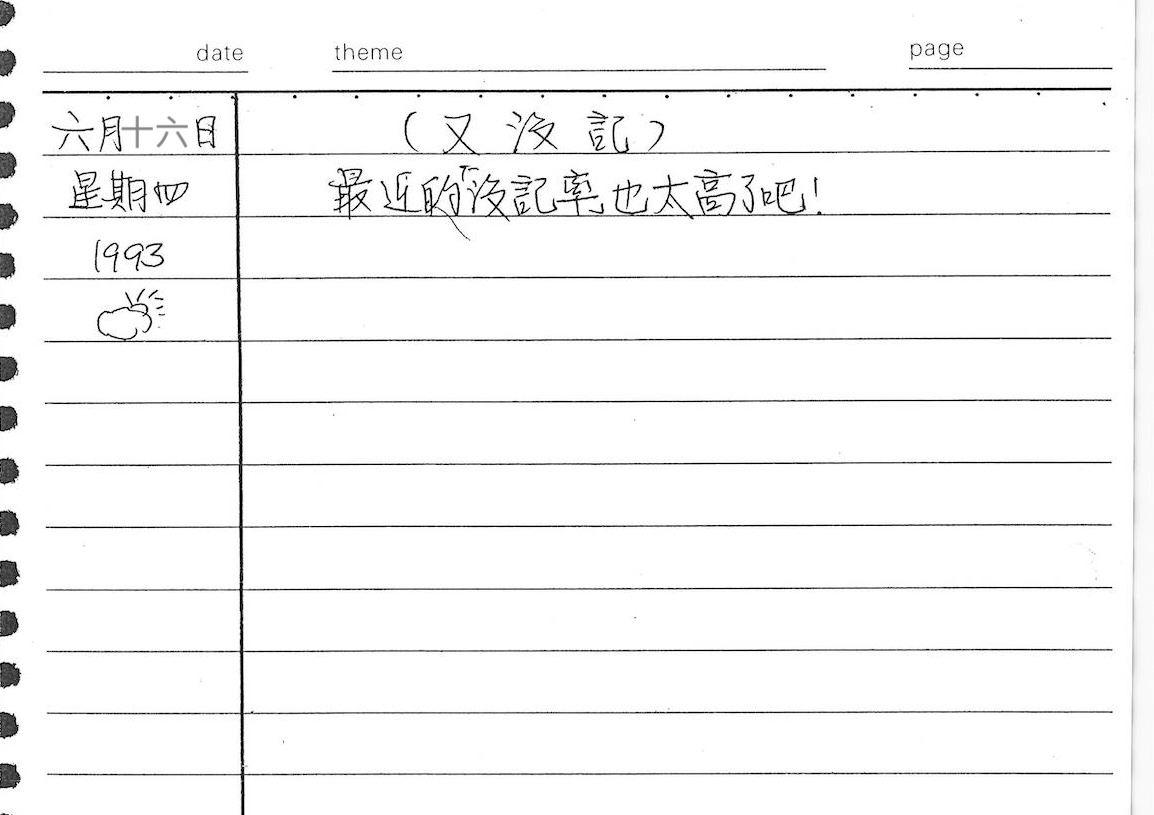 date theme page
六月十六日 （又沒記）
星期四 最近的「沒記率」也太高了吧！
1993